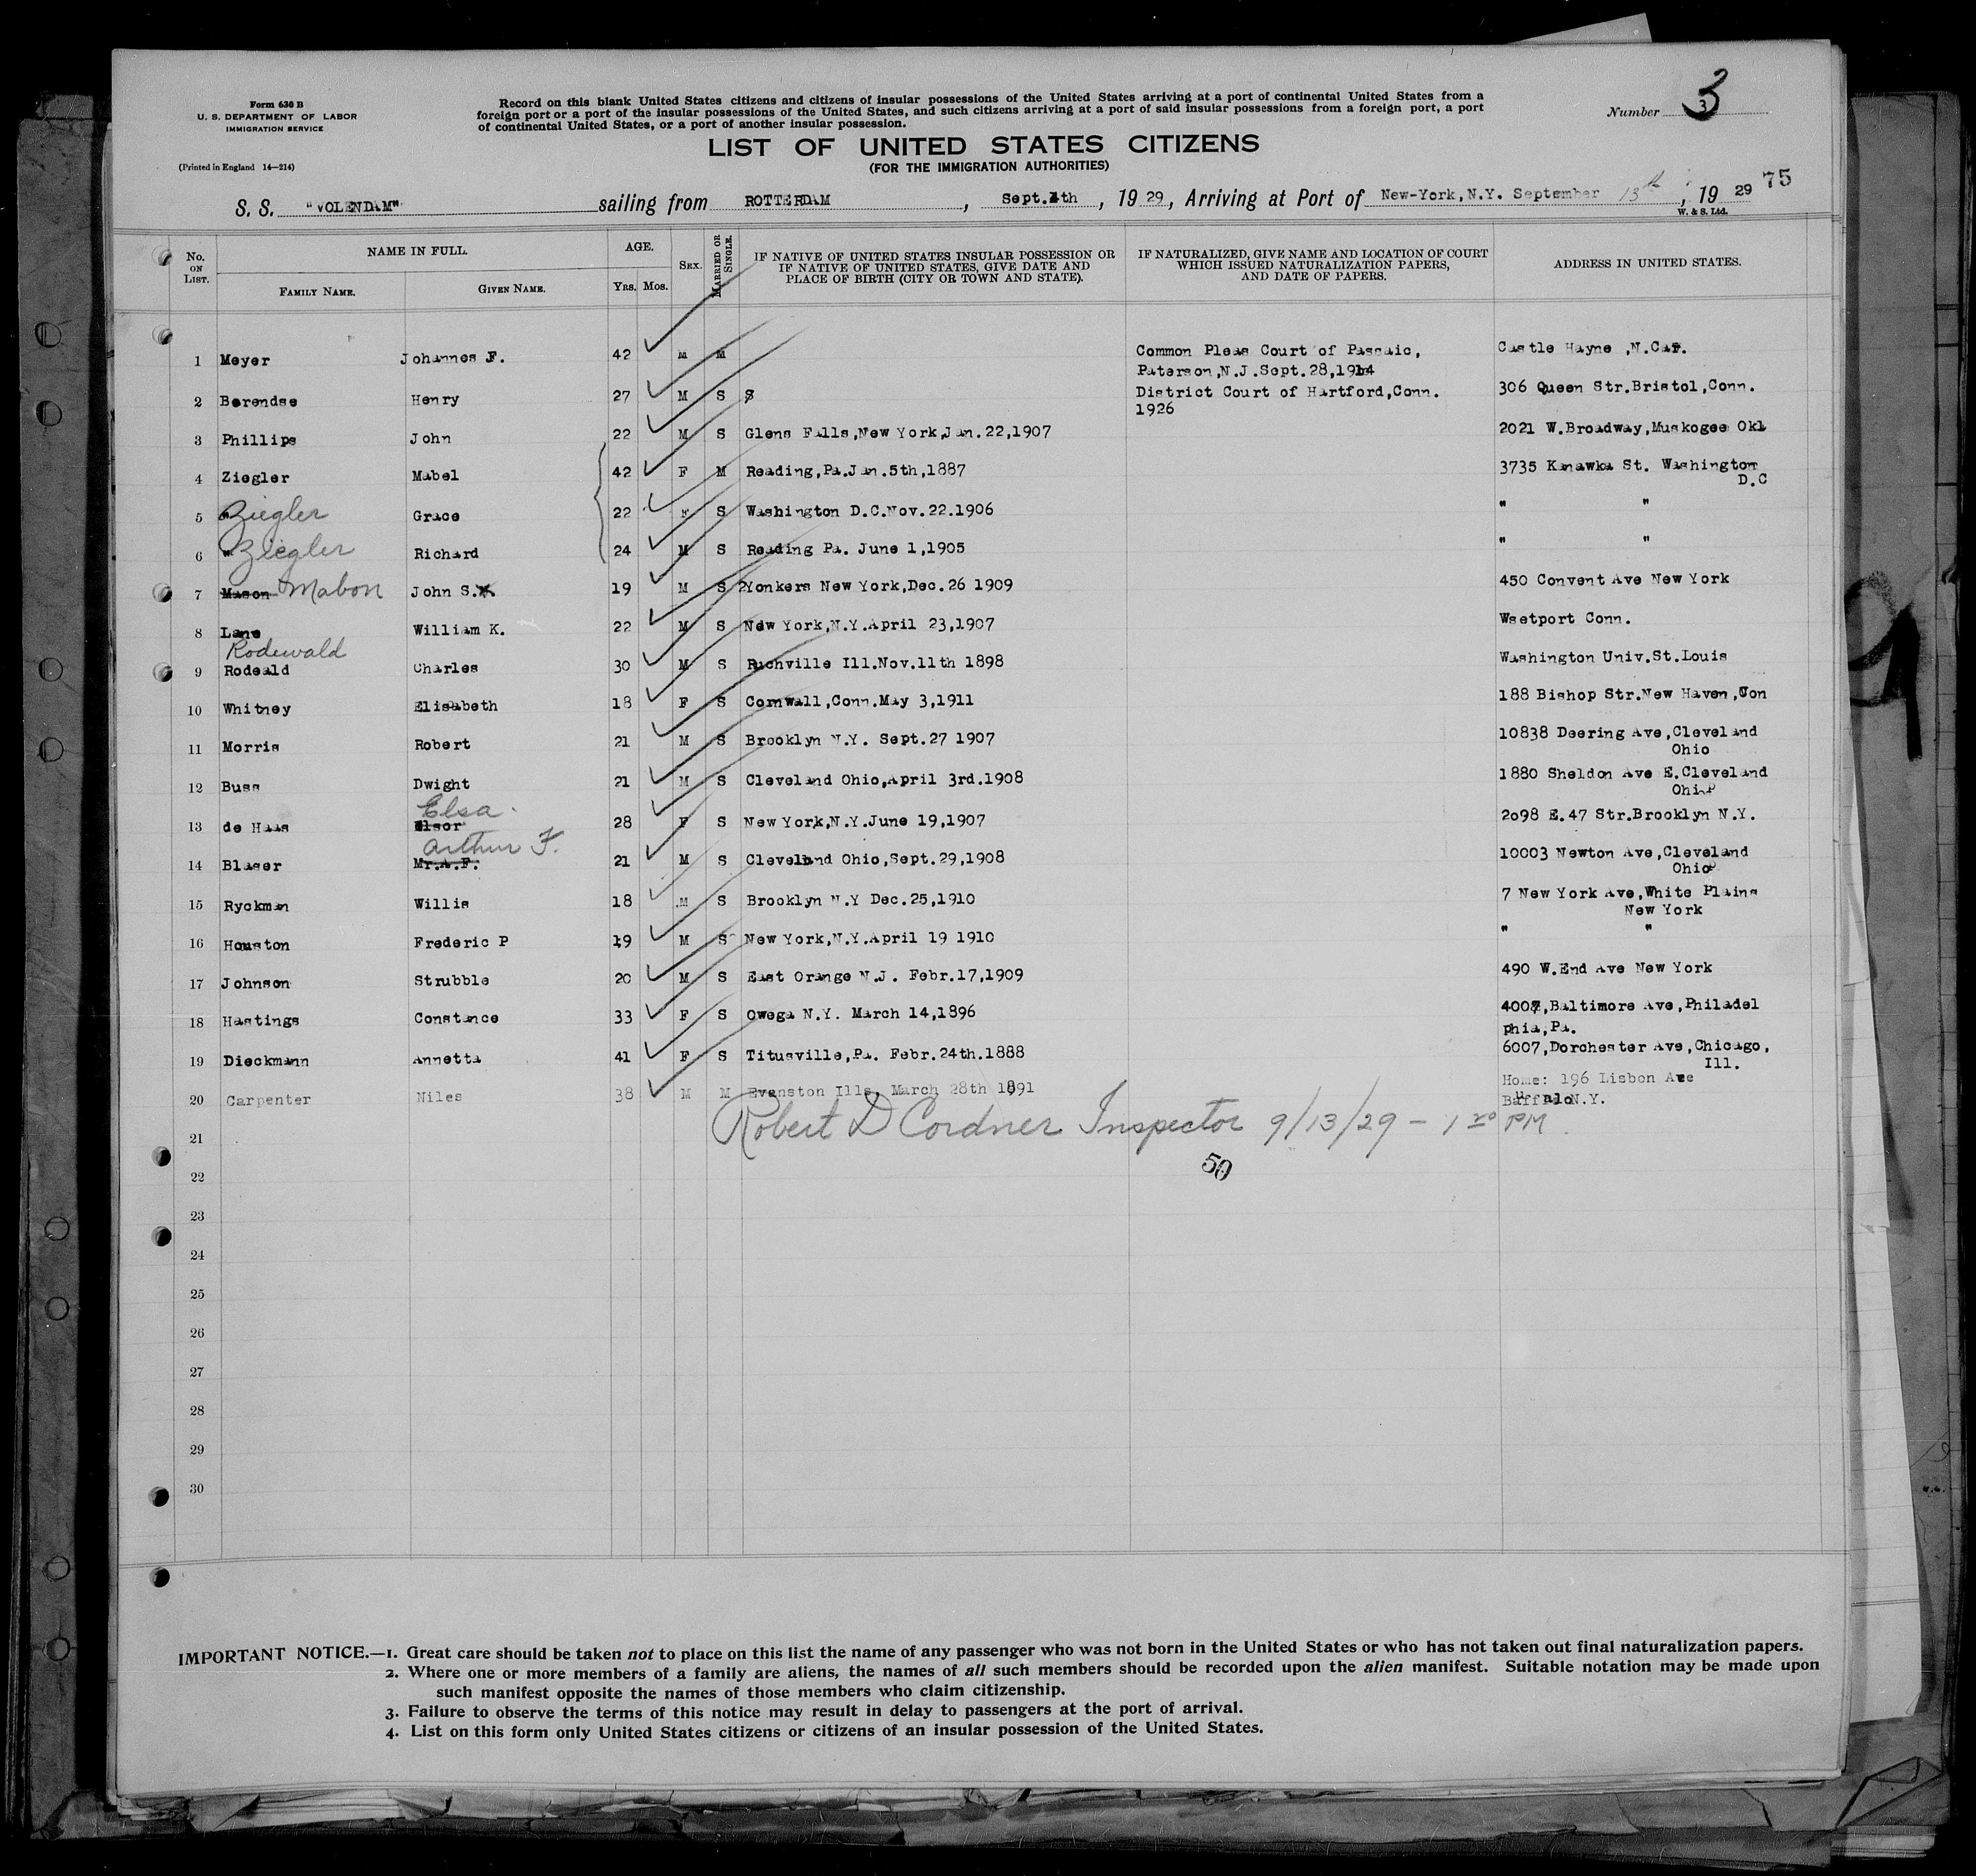 Form 630 B
U. S. DEPARTMENT OF LABOR
IMMIGRATION SERVICE
(Printed in England 14—214)
Record on this blank United States citizens and citizens of insular possessions of the United States arriving at a port of continental United States from a
foreign port or a port of the insular possessions of the United States, and such citizens arriving at a port of said insular possessions from a foreign port, a port
of continental United States, or a port of another insular possession.
Number 3 3
LIST OF UNITED STATES CITIZENS
(FOR THE IMMIGRATION AUTHORITIES)
75
S. S. "VOLENDAM" sailing from ROTTERDAM, Sept.4th, 19 29, Arriving at Port of New-York,N.Y. September 13th, 19 29
W. & S. Ltd.
No. ON LIST. NAME IN FULL. FAMILY NAME. GIVEN NAME. AGE. YRS. MOS. SEX. MARRIED OR SINGLE. IF NATIVE OF UNITED STATES INSULAR POSSESSION OR IF NATIVE OF UNITED STATES, GIVE DATE AND PLACE OF BIRTH (CITY OR TOWN AND STATE). IF NATURALIZED, GIVE NAME AND LOCATION OF COURT WHICH ISSUED NATURALIZATION PAPERS, AND DATE OF PAPERS. ADDRESS IN UNITED STATES.
1 Meyer Johannes F. 42 M M Common Pleas Court of Passaic, Castle Hayne ,N.Car.
Paterson,N.J.Sept.28,1914
2 Berendse Henry 27 M S S District Court of Hartford,Conn. 306 Queen Str.Bristol,Conn.
1926
3 Phillips John 22 M S Glens Falls,New York,Jan.22,1907 2021 W.Broadway,Muskogee Okl
4 Ziegler Mabel 42 F M Reading,Pa.Jan.5th,1887 3735 Kanawka St. Washington
D.C
5 " Ziegler Grace 22 F S Washington D.C.Nov.22.1906 " "
6 " Ziegler Richard 24 M S Reading Pa. June 1,1905 " "
7 Mason Mabon John S. 19 M S Yonkers New York,Dec.26 1909 450 Convent Ave New York
8 Lane William K. 22 M S New York,N.Y.April 23,1907 Wsetport Conn.
Rodewald
9 Rodeald Charles 30 M S Ruchville Ill.Nov.11th 1898 Washington Univ.St.Louis
10 Whitney Elisabeth 18 F S Cornwall,Conn.May 3,1911 188 Bishop Str.New Haven,Con
11 Morris Robert 21 M S Brooklyn N.Y. Sept.27 1907 10838 Deering Ave,Cleveland
Ohio
12 Buss Dwight 21 M S Cleveland Ohio,April 3rd.1908 1880 Sheldon Ave E.Cleveland
Ohio
Elsa
13 de Haas Elsor 28 F S New York,N.Y.June 19,1907 2098 E.47 Str.Brooklyn N.Y.
Arthur F.
14 Blaser Mr.A.F. 21 M S Cleveland Ohio,Sept.29,1908 10003 Newton Ave,Cleveland
Ohio
15 Ryckman Willis 18 M S Brooklyn N.Y Dec.25,1910 7 New York Ave,White Plains
New York
16 Houston Frederic P 19 M S New York,N.Y.April 19 1910 " "
17 Johnson Strubble 20 M S East Orange N.J. Febr.17,1909 490 W.End Ave New York
18 Hastings Constance 33 F S Owega N.Y. March 14,1896 4007,Baltimore Ave,Philadel
phia,Pa.
19 Dieckmann Annetta 41 F S Titusville,Pa. Febr.24th.1888 6007,Dorchester Ave,Chicago,
Ill.
20 Carpenter Niles 38 M M Evanston Ills, March 28th 1891 Home: 196 Lisbon Ave
Buffalo N.Y.
Robert D Cordner Inspector 9/13/29 — 1 20 PM
21
50
22
23
24
25
26
27
28
29
30
IMPORTANT NOTICE.—1. Great care should be taken not to place on this list the name of any passenger who was not born in the United States or who has not taken out final naturalization papers.
2. Where one or more members of a family are aliens, the names of all such members should be recorded upon the alien manifest. Suitable notation may be made upon
such manifest opposite the names of those members who claim citizenship.
3. Failure to observe the terms of this notice may result in delay to passengers at the port of arrival.
4. List on this form only United States citizens or citizens of an insular possession of the United States.